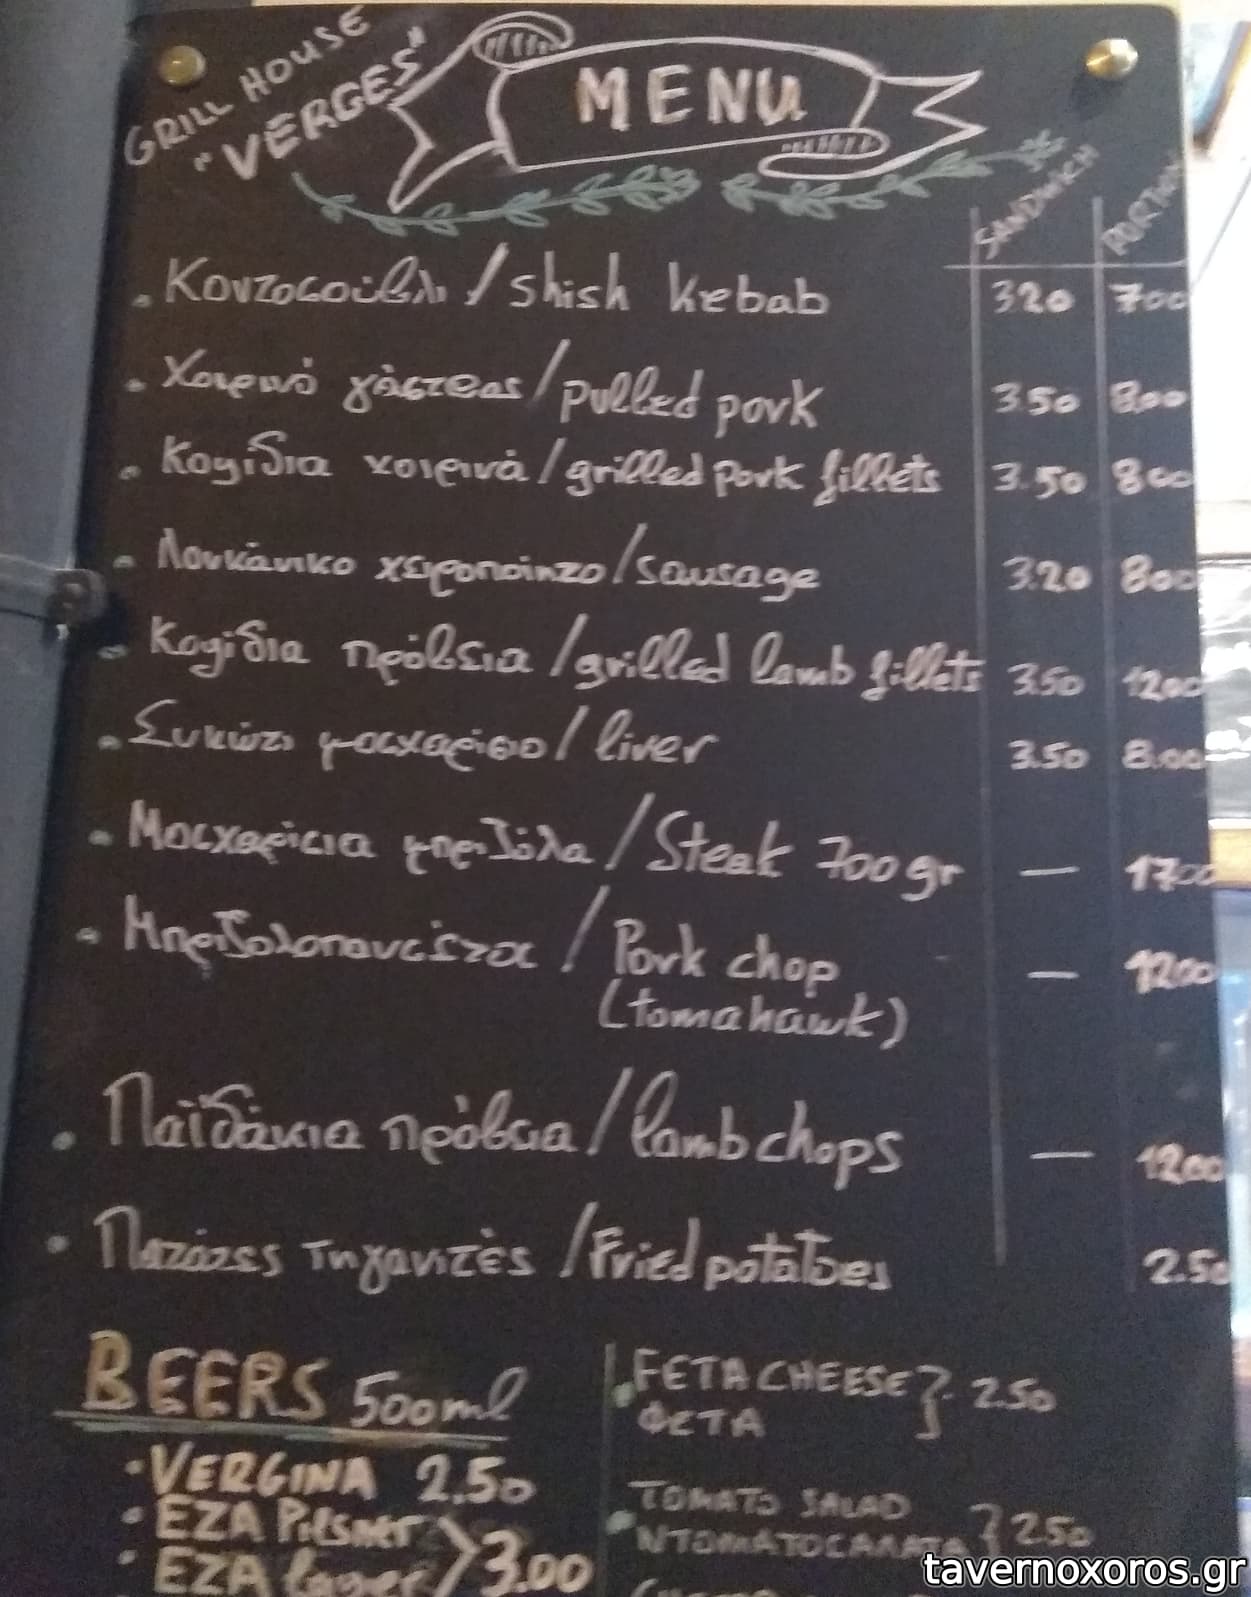 GRILL HOUSE
"VERGES"
MENU
SANDWICH PORTION
• Κοντοσούβλι / shish kebab 3.20 7.00
• Χοιρινό γάστρας / pulled pork 3.50 8.00
• Κοψίδια χοιρινά / grilled pork fillets 3.50 8.00
• Λουκάνικο χειροποίητο / sausage 3.20 8.00
• Κοψίδια πρόβεια / grilled lamb fillets 3.50 12.00
• Συκώτι μοσχαρίσιο / liver 3.50 8.00
• Μοσχαρίσια μπριζόλα / Steak 700gr — 17.00
• Μπριζολοπανσέτα / Pork chop — 12.00
(tomahawk)
• Παϊδάκια πρόβεια / lamb chops — 12.00
• Πατάτες τηγανιτές / Fried potatoes 2.50
BEERS 500ml
• VERGINA 2.50
• EZA Pilsner
• EZA lager 3.00
• FETA CHEESE
ΦΕΤΑ 2.50
• TOMATO SALAD
ΝΤΟΜΑΤΟΣΑΛΑΤΑ 2.50
tavernoxoros.gr